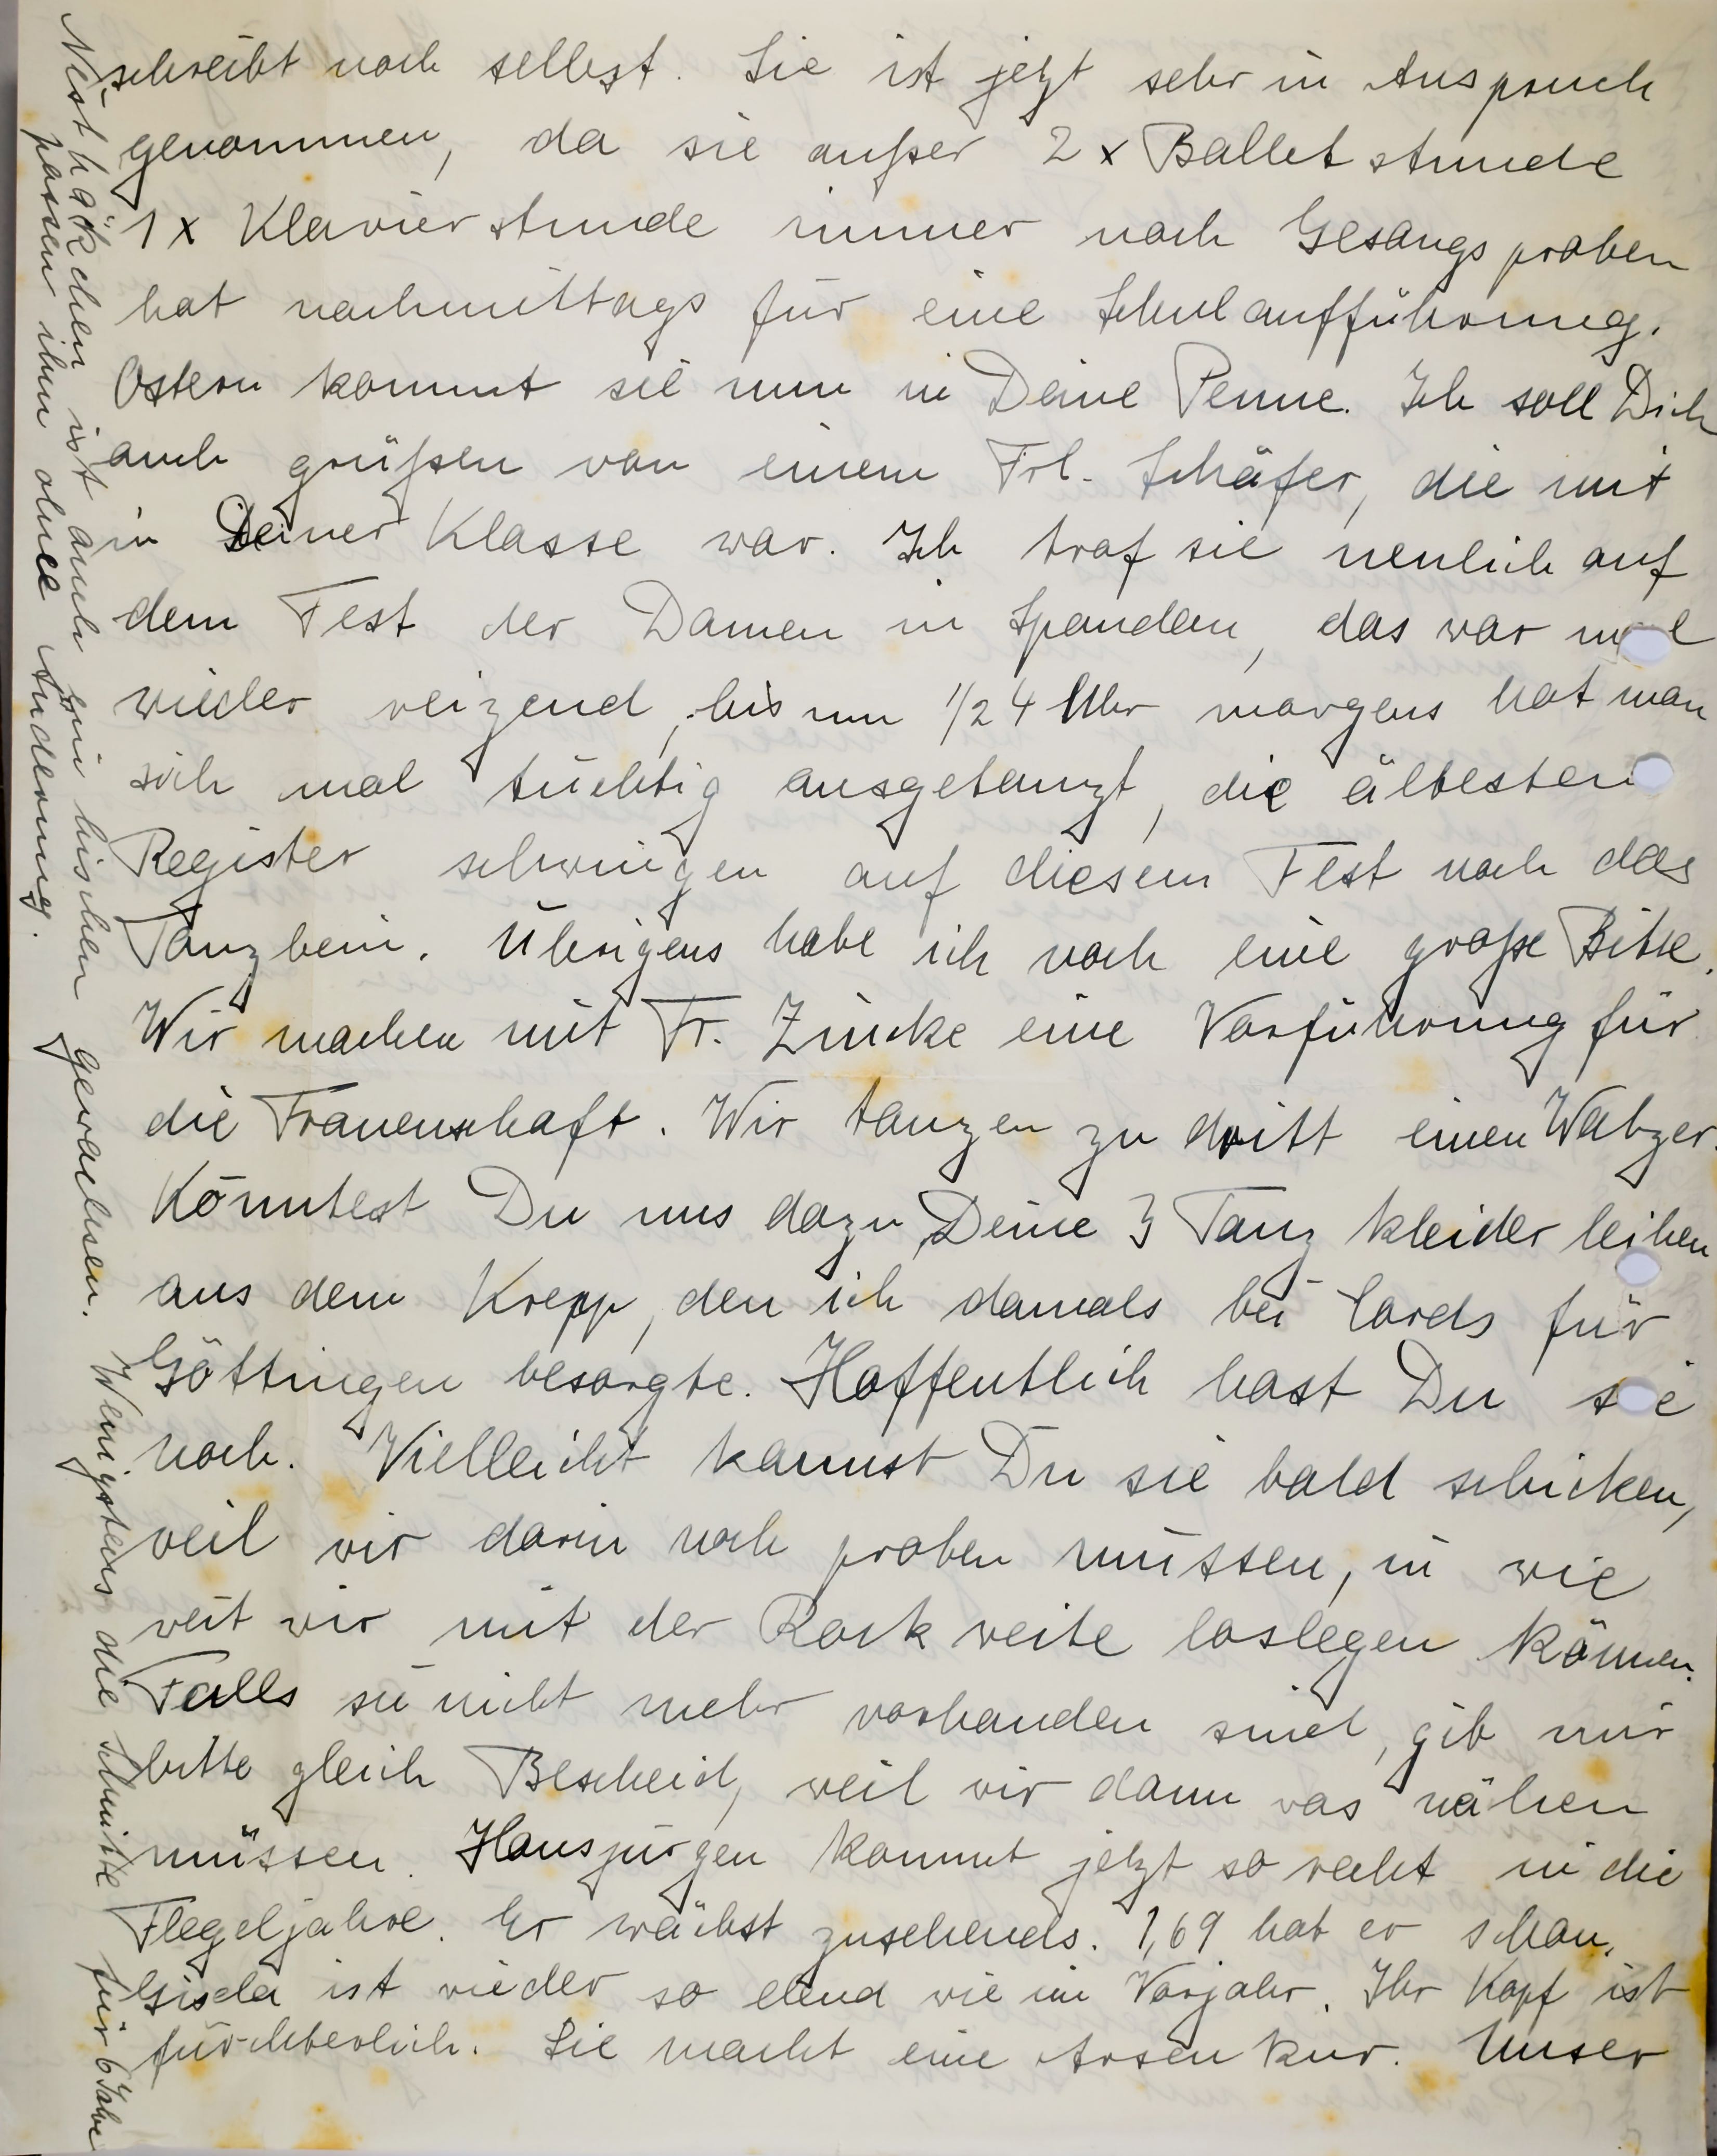 schreibt noch selbst. Sie ist jetzt sehr in Anspruch
genommen, da sie außer 2 x Balletstunde
1 x Klavierstunde immer noch Gesangsproben
hat nachmittags für eine Schulaufführung.
Ostern kommt sie nun in Deine Penne. Ich soll Dich
auch grüßen von einem Frl. Schäfer, die mit
in Deiner Klasse war. Ich traf sie neulich auf
dem Fest der Damen in Spandau, das war mal
wieder reizend, bis um 1/2 4 Uhr morgens hat man
sich mal tüchtig ausgetanzt, die ältesten
Register schwingen auf diesem Fest noch das
Tanzbein. Übrigens habe ich noch eine große Bitte.
Wir machen mit Fr. Zincke eine Vorführung für
die Frauenschaft. Wir tanzen zu dritt einen Walzer.
Könntest Du uns dazu Deine 3 Tanzkleider leihen
aus dem Krepp, den ich damals bei Cords für
Göttingen besorgte. Hoffentlich hast Du sie
noch. Vielleicht kannst Du sie bald schicken,
weil wir darin noch proben müssen, in wie
weit wir mit der Rockweite loslegen können.
Falls sie nicht mehr vorhanden sind, gib mir
bitte gleich Bescheid, weil wir dann was nähen
müssen. Hansjürgen kommt jetzt so recht in die
Flegeljahre. Er wächst zusehends. 1,69 hat er schon.
Gisela ist wieder so elend wie im Vorjahr. Ihr Kopf ist
fürchterlich. Sie macht eine Arsenkur. Unser
Nesthäkchen ist auch ein bischen gewachsen. Wenigstens die Schnitte für 6 Jahre
passen ihm ohne Änderung.